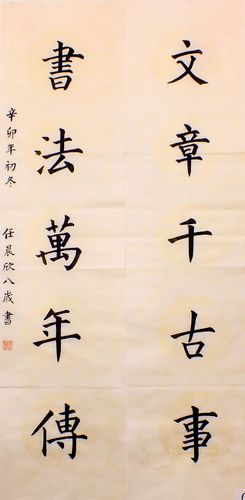 文章千古事
書法萬年傳
辛卯年初冬
任晨欣八歲書